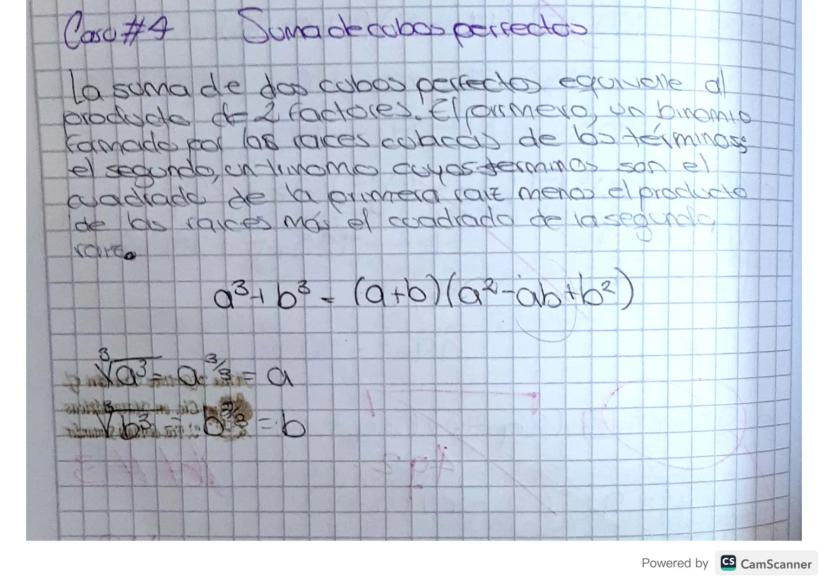 Caso #4 Suma de cubos perfectos
La suma de dos cubos perfectos equivale al
producto de 2 factores. El primero, un binomio
formado por las raices cubicas de los términos;
el segundo, un trinomio cuyos terminos son el
cuadrado de la primera raiz menos el producto
de las raices más el cuadrado de la segunda
raiz.
a³ + b³ = (a+b)(a²-ab+b²)
∛a³ = a^3/3 = a
∛b³ = b^3/3 = b
Powered by CS CamScanner